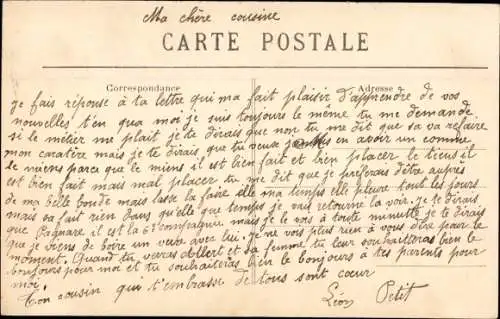 Ma chère cousine
CARTE POSTALE
Correspondance Adresse
Je fais réponse à ta lettre qui ma fait plaisir d'apprendre de vos
nouvelles t'en qua moi je suis toujours le même tu me demande
si le métier me plait je te dirais que non tu me dit que sa va refaire
mon caratère mais je te dirais que tu veux en avoir un comme
le miens parce que le miens il est bien fait et bien placer le tiens il
est bien fait mais mal placer tu me dit que je préferais d'être auprès
de ma belle bonde mais lasse la faire elle ma temps elle pleure tout les jours
mais sa fait rien dans qu'elle que temps je vais retourne la voir. Je te dirais
que Pagnare il est la 6e compagnie mais je le vois à toute minutte je te dirais
que je viens de boire un verre avec lui. Je ne vois plus rien à vous dire pour le
moment. Quand tu veras et sa femme tu leur souhaiteras bien le
bonjours pour moi et tu souhaiteras bien le bonjours à tes parents pour
moi.
Ton cousin qui t'embrasse de tous sont cœur
Léon Petit